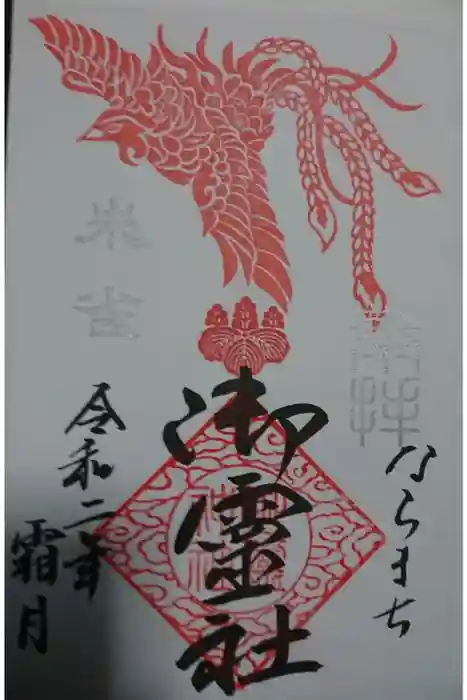 奉拝
ならまち
御靈社
令和二年
霜月
朱雀